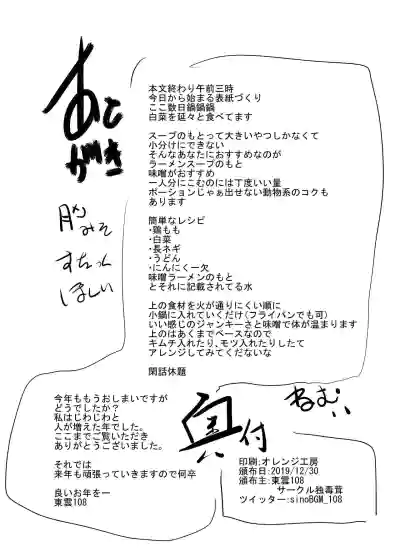 あとがき
本文終わり午前三時
今日から始まる表紙づくり
ここ数日鍋鍋鍋
白菜を延々と食べてます
スープのもとって大きいやつしかなくて
小分けにできない
そんなあなたにおすすめなのが
ラーメンスープのもと
味噌がおすすめ
一人分にこむのには丁度いい量
ポーションじゃぁ出せない動物系のコクも
あります
簡単なレシピ
・鶏もも
・白菜
・長ネギ
・うどん
・にんにく一欠
味噌ラーメンのもと
とそれに記載されてる水
上の食材を火が通りにくい順に
小鍋に入れていくだけ(フライパンでも可)
いい感じのジャンキーさと味噌で体が温まります
上のはあくまでベースなので
キムチ入れたり、モツ入れたりしたて
アレンジしてみてくだないな
閑話休題
みそ
ほしい
今年ももうおしまいですが
どうでしたか?
私はじわじわと
人が増えた年でした。
ここまでご覧いただき
ありがとうございました。
それでは
来年も頑張っていきますので何卒
良いお年をー
東雲108
奥付
ねむい
印刷:オレンジ工房
頒布日:2019/12/30
頒布主:東雲108
サークル独毒茸
ツイッター:sinoBGM_108